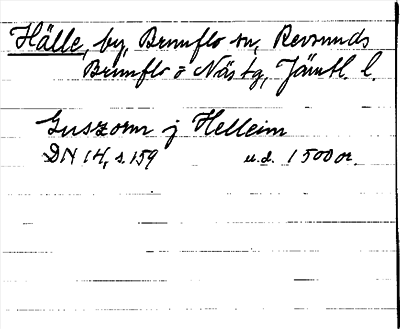 Hälle, by, Brunflo sn, Revsunds
Brunflo o Näs tg, Jämtl. l.
Guszorm j Helleim
DN 14, s. 159 u.d. 1500 or.